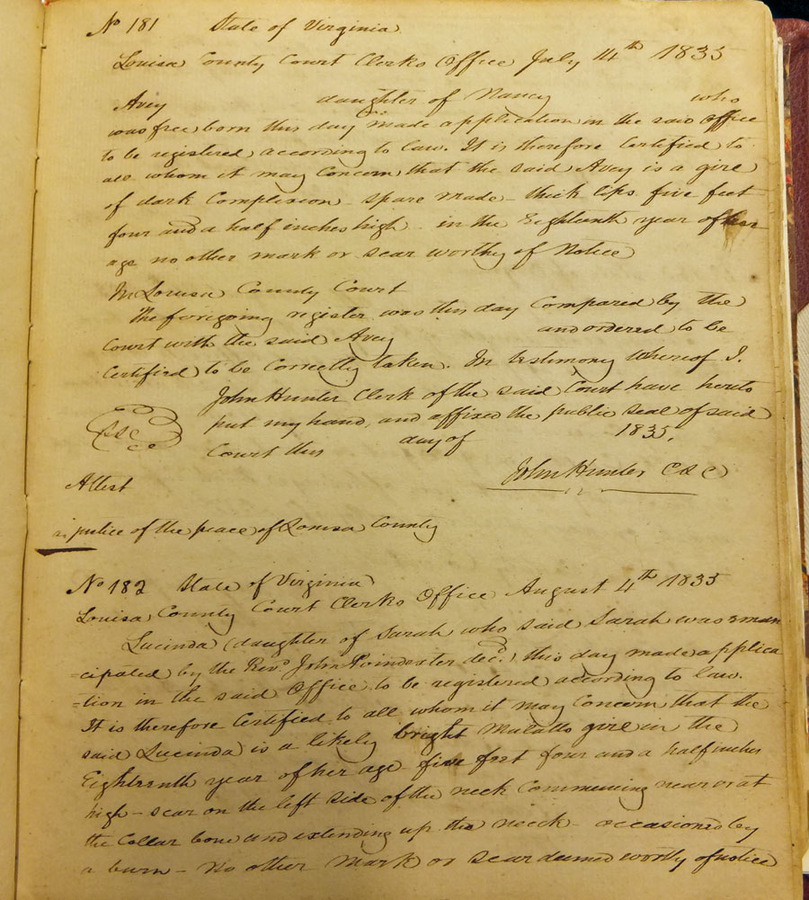 No 181 State of Virginia
Louisa County Court Clerks Office July 14th 1835
Avey daughter of Nancy who
was free born this day made application in the said office
to be registered according to law. It is therefore Certified to
all whom it may Concern that the said Avey is a girl
of dark Complexion spare made - thick lips five feet
four and a half inches high - in the Eighteenth year of her
age no other mark or scar worthy of Notice
In Louisa County Court
The foregoing register was this day Compared by the
Court with the said Avey and ordered to be
Certified to be Correctly taken. In testimony whereof I.
John Hunter Clerk of the said Court have hereto
put my hand, and affixed the public seal of said
Court this day of 1835.
John Hunter
Attest
a justice of the peace of Louisa County
No 182 State of Virginia
Louisa County Court Clerks Office August 4th 1835
Lucinda (daughter of Sarah who said Sarah was eman
=cipated by the Revd John Poindexter decd.) this day made applica
=tion in the said Office to be registered according to law.
It is therefore Certified to all whom it may Concern that the
said Lucinda is a likely bright Mulatto girl in the
Eighteenth year of her age five feet four and a half inches
high - scar on the left side of the neck Commencing near or at
the Collar bone and extending up the neck - occasioned by
a burn - No other Mark or Scar deemed worthy of notice